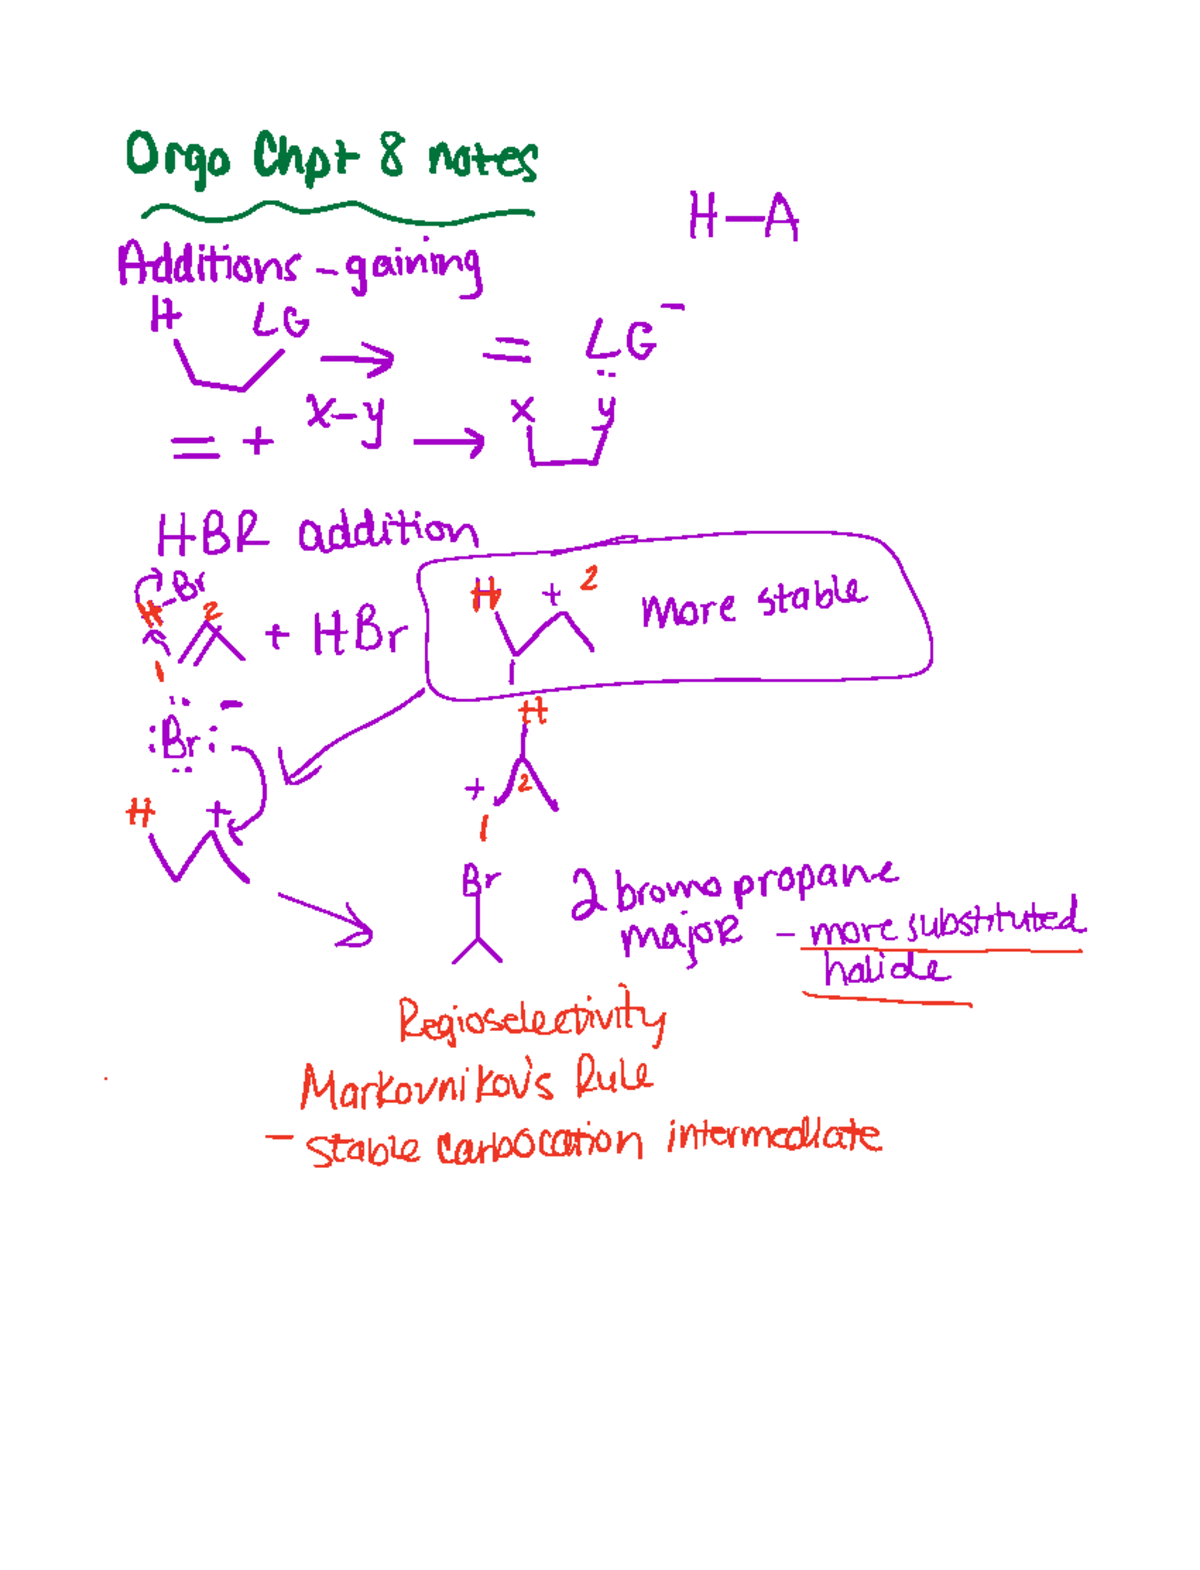 Orgo Chpt 8 notes
H—A
Additions - gaining
H LG → = LG:⁻
= + x-y → x y
HBR addition
H-Br
1 2 + HBr
H + 2 More stable
:Br:⁻
H +
H
+ 2
1
Br
2 bromo propane
major - more substituted
halide
Regioselectivity
Markovnikov's Rule
- stable carbocation intermediate